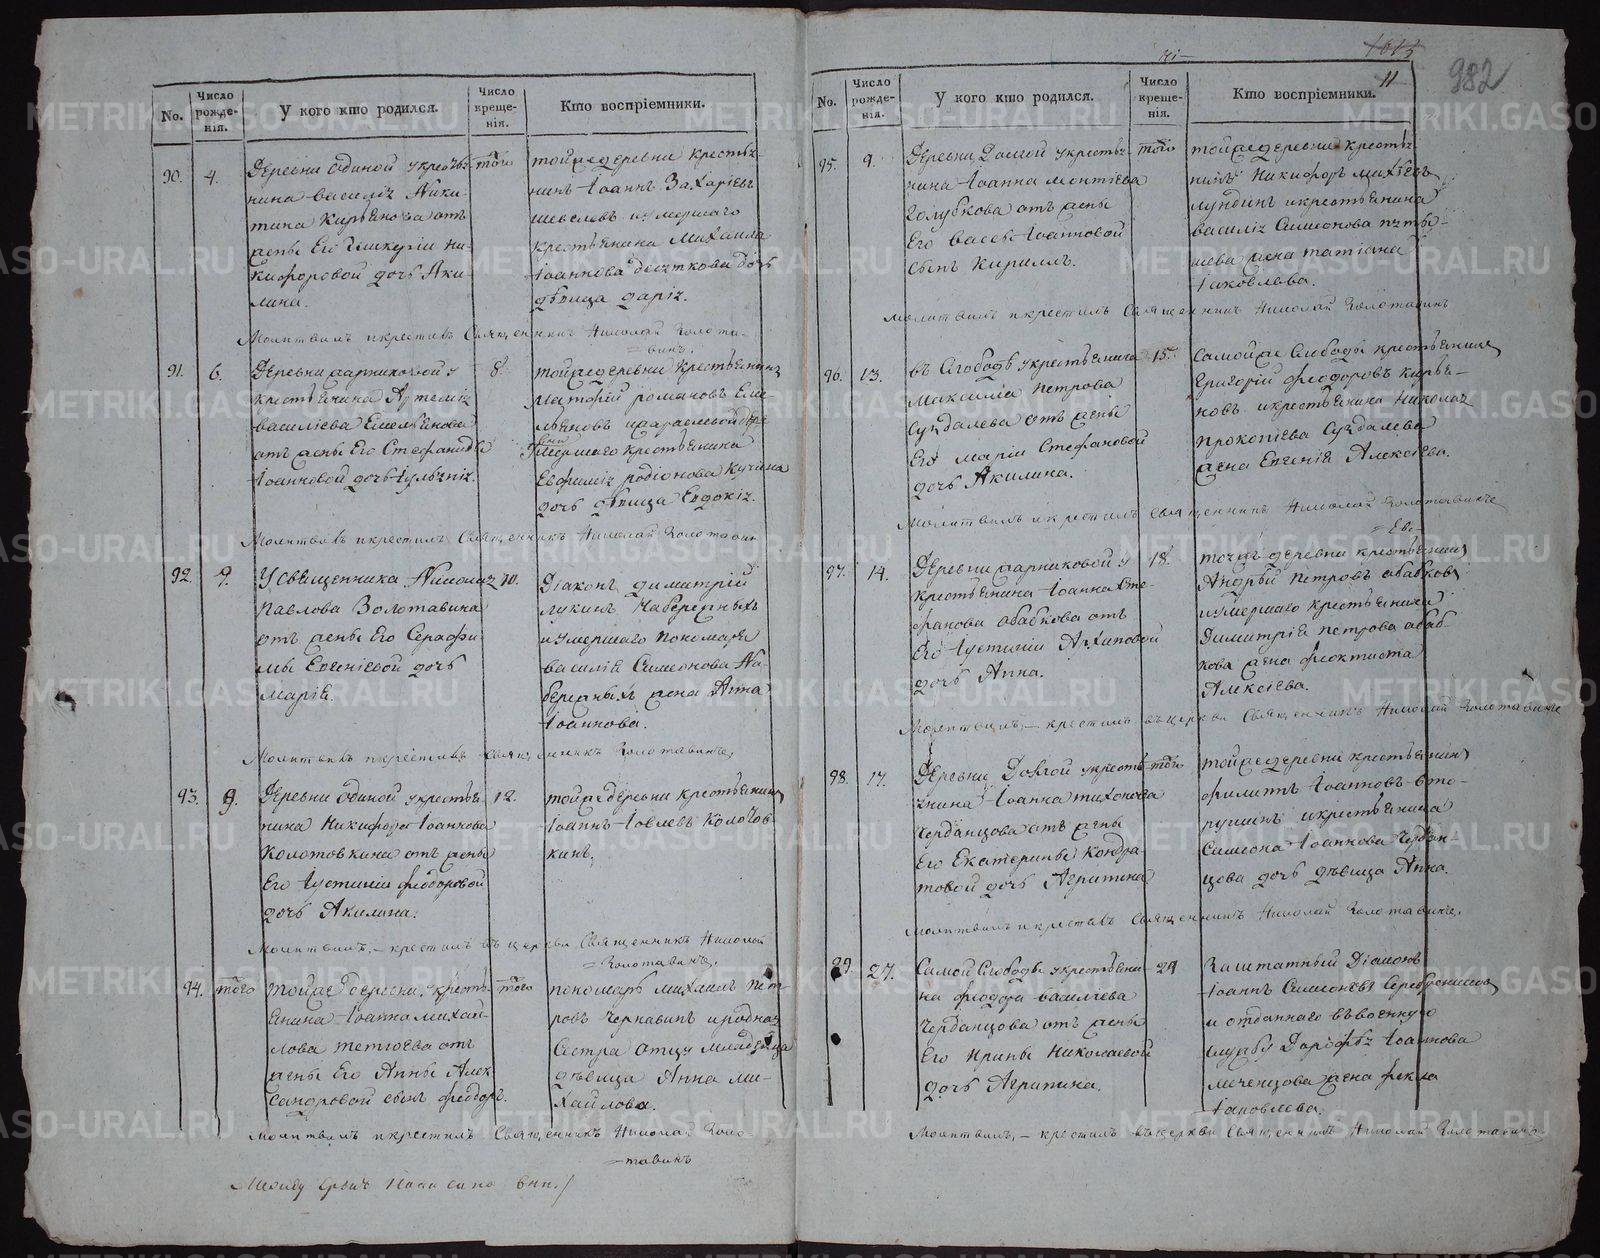 No.
Число рожде-нія.
У кого кто родился.
Число креще-нія.
Кто воспріемники.
90.
4.
Деревни Одиной у кресть-
нина Василія Ники-
тина Кирьянова отъ
жены Его Гликеріи Ни-
кифоровой дочь Аки-
лина.
того
тойже деревни кресть-
нинъ Іоаннъ Захаріевъ
Шевелевъ и умершаго
крестьянина Михаила
Іоаннова дочь
дѣвица Дарія.
Молитвилъ и крестилъ Священникъ Николай Золота-
винъ.
91.
6.
Деревни Жарниковой у
крестьянина Артемія
Василіева Емельянова
отъ жены Его Стефаниды
Іоанновой дочь Іуліанія.
8.
тойже деревни крестьянинъ
Матфій Романовъ Еме-
льяновъ и
умершаго крестьянина
Евфимія Родіонова
дочь дѣвица Евдокія.
Молитвилъ и крестилъ Священникъ Николай Золотавин
92.
9.
У Священника Николая
Павлова Золотавина
отъ жены Его Серафи-
мы Евгеніевой дочь
Марія.
10.
Діаконъ Димитрій
Лукинъ Набережныхъ
и умершаго пономаря
Василія Симеонова На-
бережныхъ жена Анна
Іоаннова.
Молитвилъ и крестилъ Священникъ Золотавинъ,
93.
9.
Деревни Одиной у кресть-
нина Никифора Іоаннова
Колотовкина отъ жены
Его Іустиніи Феодоровой
дочь Акилина.
12.
тойже деревни крестьянинъ
Іоаннъ Іовлевъ Колотов-
кинъ.
Молитвилъ, – крестилъ въ церкви Священникъ Николай
Золотавинъ.
94.
того
тойже деревни, у кресть-
янина Іоанна Михай-
лова Тетюева отъ
жены Его Анны Алек-
сандровой сынъ Феодоръ.
того
пономарь Михаилъ Пет-
ровъ Чернавинъ и родная
Сестра отцу младенца
дѣвица Анна Ми-
хайлова.
Молитвилъ и крестилъ Священникъ Николай Золо-
тавинъ
982
11
No.
Число рожде-нія.
У кого кто родился.
Число креще-нія.
Кто воспріемники.
95.
9.
Деревни Долгой у кресть-
нина Іоанна
Голубкова отъ жены
Его Вассы Іоанновой
Сынъ Кириллъ.
того
тойже деревни кресть-
нинъ Никифоръ
Лундинъ и крестьянина
Василія Симеонова
жена Татіана
Іаковлева.
Молитвилъ и крестилъ Священникъ Николай Золотавинъ
96.
13.
въ Слободѣ у крестьянина
Максима Петрова
Суздалева отъ жены
Его Маріи Стефановой
дочь Акилина.
15.
Самойже Слободы крестьянинъ
Григорій Феодоровъ Кирья-
новъ и крестьянина Николая
Прокопіева Суздалева
жена Евгенія Алексіева.
Молитвилъ и крестилъ Священникъ Николай Золотавинъ
97.
14.
Деревни Жарниковой у
крестьянина Іоанна Сте-
фанова Абабкова отъ
Его Іустиніи Архиповой
дочь Анна.
18.
тойже деревни крестьянинъ
Андрей Петровъ Абабковъ
и умершаго крестьянина
Димитрія Петрова Абаб-
кова жена Феоктиста
Алексіева.
Молитвилъ, – крестилъ въ церкви Священникъ Николай Золотавинъ
98.
17.
Деревни Долгой у кресть-
янина Іоанна Тихонова
Чердынцова отъ жены
Его Екатерины Кондра-
товой дочь Агрипина
того
тойже деревни крестьянин
Филиппъ Іоанновъ Вто-
рушинъ и крестьянина
Симеона Іоаннова Чердын-
цова дочь дѣвица Анна.
Молитвилъ и крестилъ Священникъ Николай Золотавинъ.
99.
27.
Самой Слободы у крестьяни-
на Феодора Василіева
Чердынцова отъ жены
Его Ирины Николаевой
дочь Агрипина.
29
Заштатный Діаконъ
Іоаннъ Симеоновъ Серебренниковъ
и отданнаго въ военную
службу Дорофѣя Іоаннова
жена Фекла
Іаковлева.
Молитвилъ, – крестилъ въ церкви Священникъ Николай Золотавинъ
METRIKI.GASO-URAL.RU